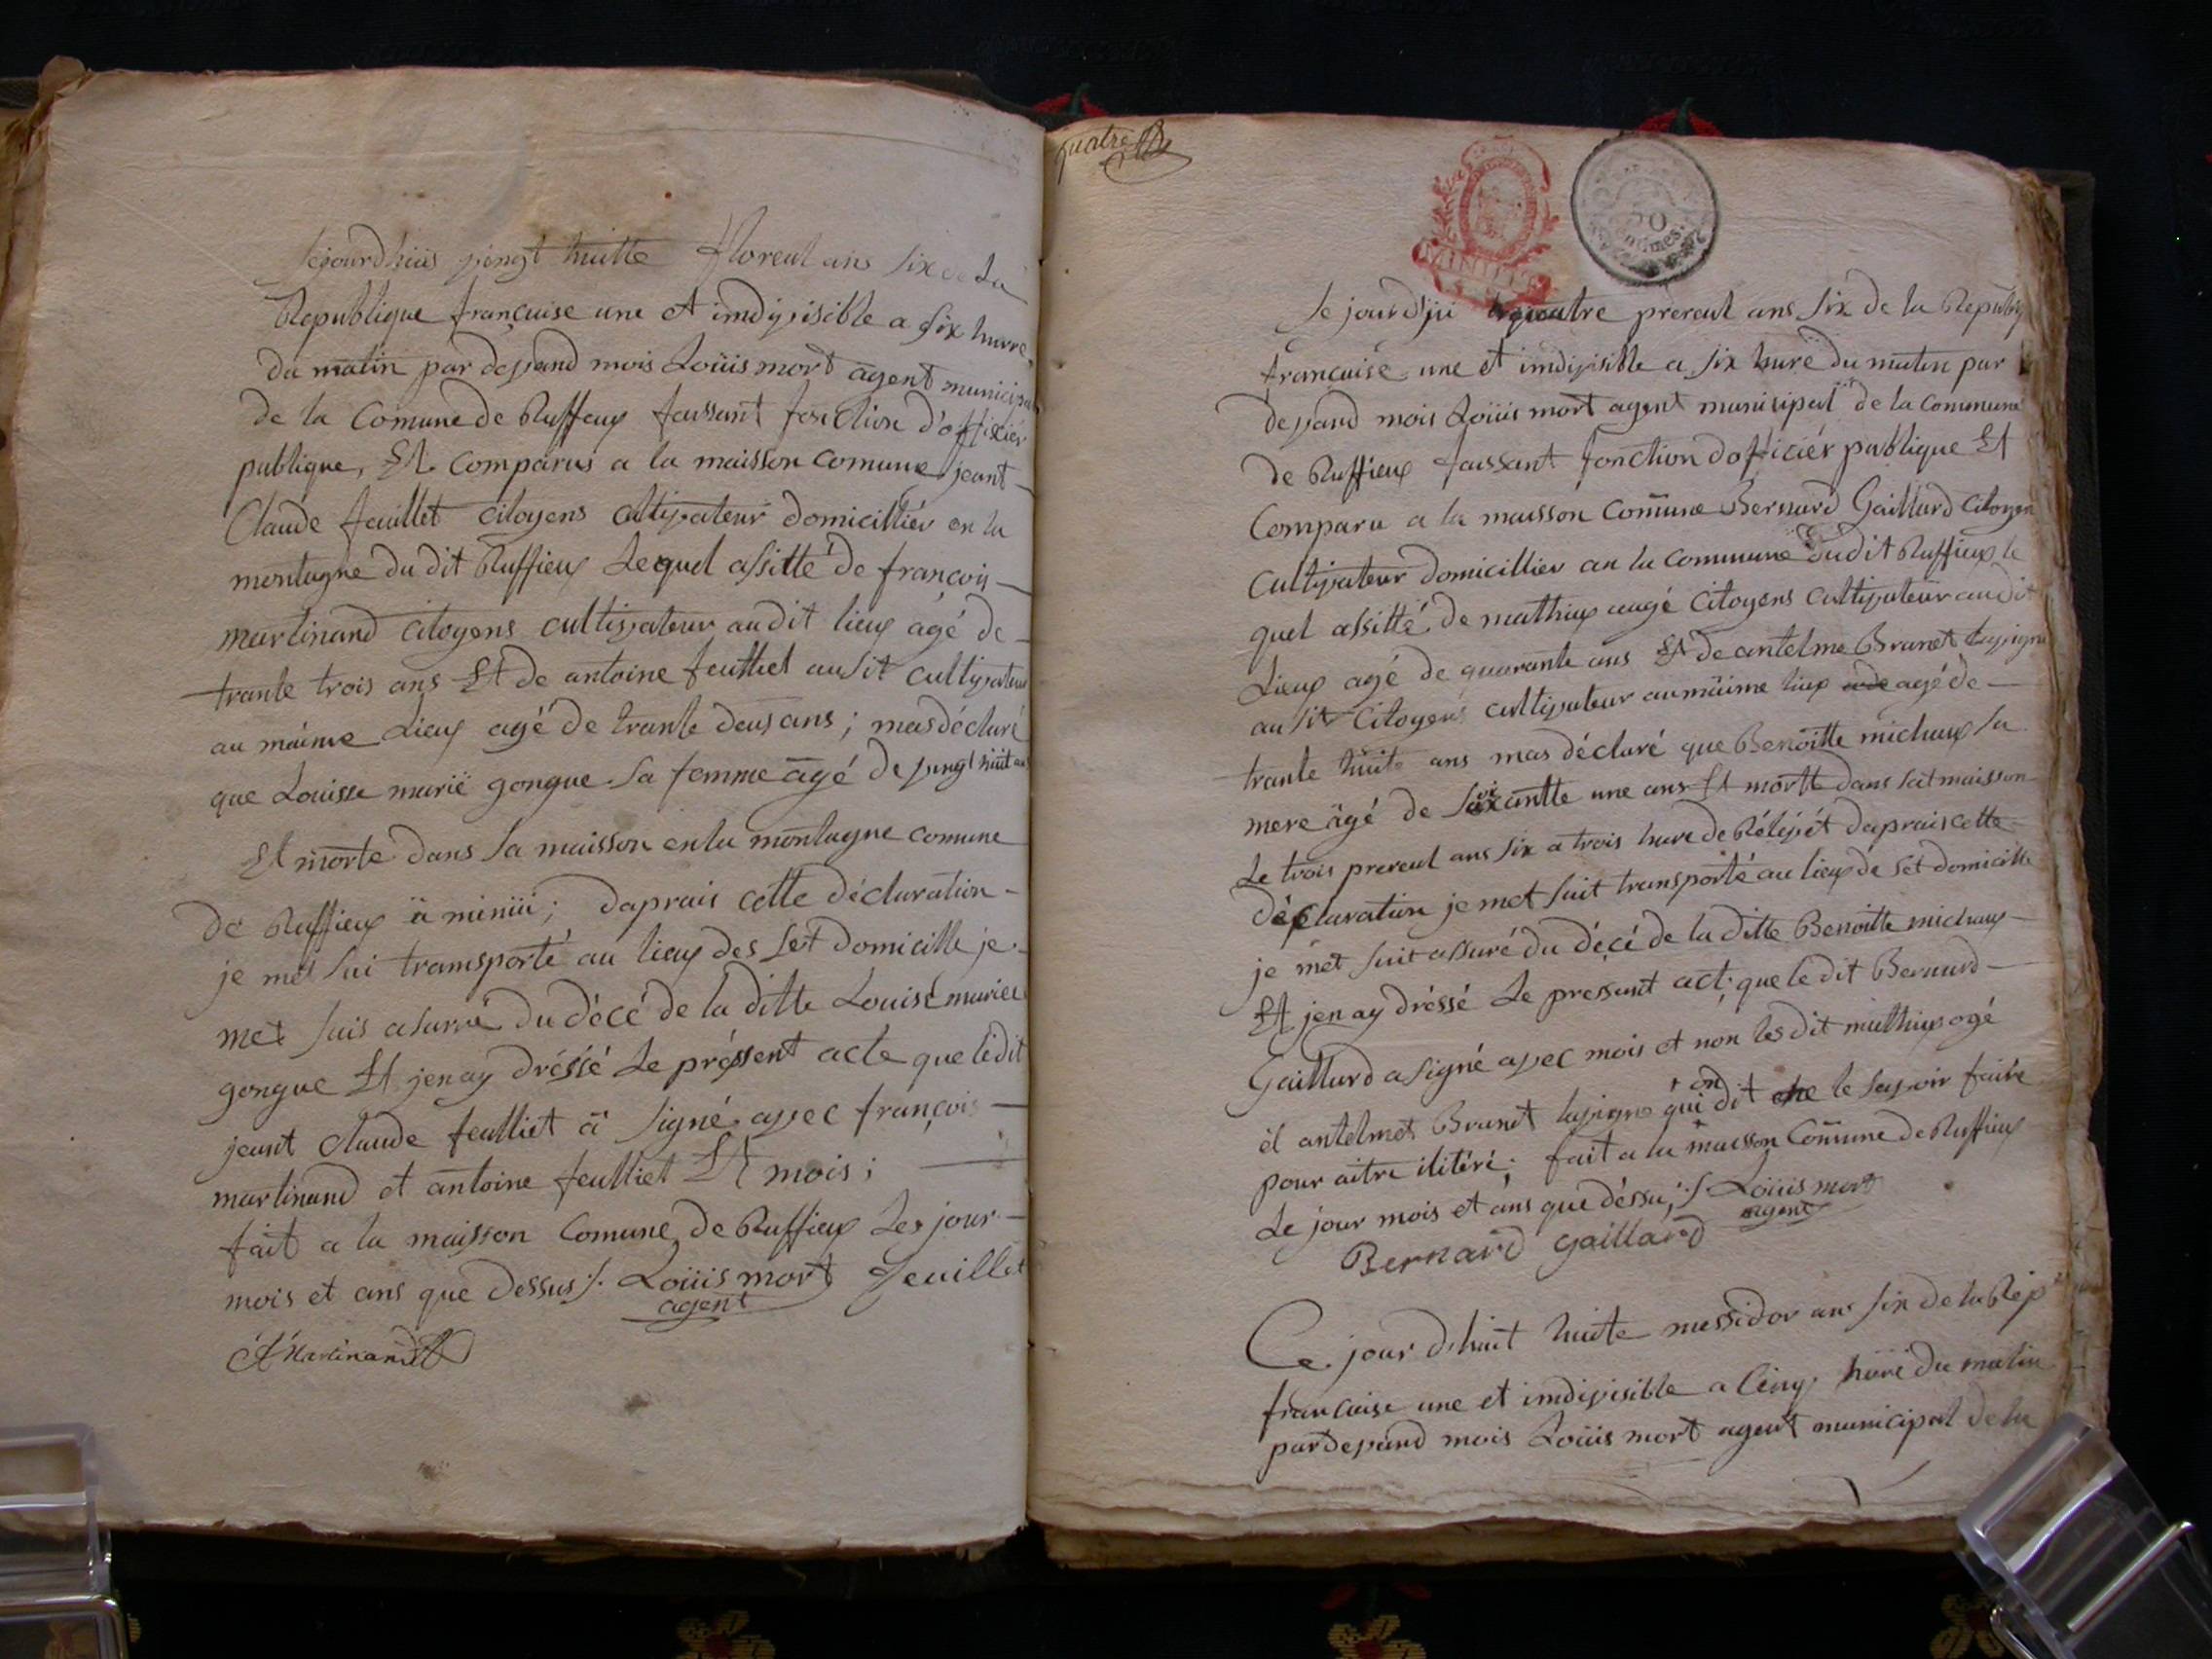 sejourdhüis vingt huitte floreal ans six de La
Republique francaise une et imdivisible a six hurre
du matin par devand mois Loüis mort agent municipal
de la Comune de Ruffieux faissant fonction d'offisiér
publique, Et comparus a la maisson comune jeant
Claude feuillet citoyens cultivateur domicilliér en la
montagne du dit Ruffieux Lequel assitté de françois
martinand citoyens cultivateur audit lieux agé de
trante trois ans Et de antoine feuilliet ausit cultivateur
au máime Lieux agé de trante deus ans ; mas déclaré
que Louisse marië gongue sa femme agé de vingt huit ans
Et morte dans sa maisson en la montagne comune
de Ruffieux ä minüi ; daprais cette déclaration
je met sui transporté au lieux des set domicille je
met suis asurré du décé de la ditte Louise marie
gongue Et jen ay dréssé Le préssent acte que lédit
jeant Claude feulliet ä signé avec françois
martinand et antoine feulliet Et mois ;
fait a la maisson Comune de Ruffieux Les jour
mois et ans que dessus ./. Loüis mort feuillet
agent
A Martinand
quatre
MINUTE
50
centimes.
Se jourd'jui quatre prereal ans six de la Republiq
francaise une et imdivisible a six hure du matin par
devand mois Loüis mort agent munisipal de la Commune
de Ruffieux faissant fonction dofficiér publique Et
Comparu a la maisson Comune Bernard Gaillard Citoyen
Cultivateur domicillier an la Commune dudit Ruffieux le
quel assitté de mathieux augé Citoyens Cultivateur audit
Lieux agé de quarante ans Et de antelme Brunet lavigne
ausit Citoyens cultivateur au mäime lieux agé de
trante huite ans mas déclaré que Benoitte michaux sa
mere ägé de soixantte une ans Et mortt dans sat maisson
Le trois prereal ans six a trois hure de Rélévét daprais cette
déclaration je met suit transporté au lieux de set domicille
je mét suit assuré du décé de la ditte Benoitte michaux
Et jen ay dréssé Le pressant act. que le dit Bernard
Gaillard a signé avec mois et non les dit mathieux ogé
+ on
él antelmet Brunet lavigne qui dit ne le savoir faire
pour aitre ilitéré ; fait a la maisson Comune de Ruffieux
Le jour mois et ans que déssu ; ./. Loüis mort
agent
Bernard gaillard
Ce jour dhuit huite messidor ans six de la Rep
francaise une et imdivisible a Cinq hure du matin
par devand mois Loüis mort agent municipal de la